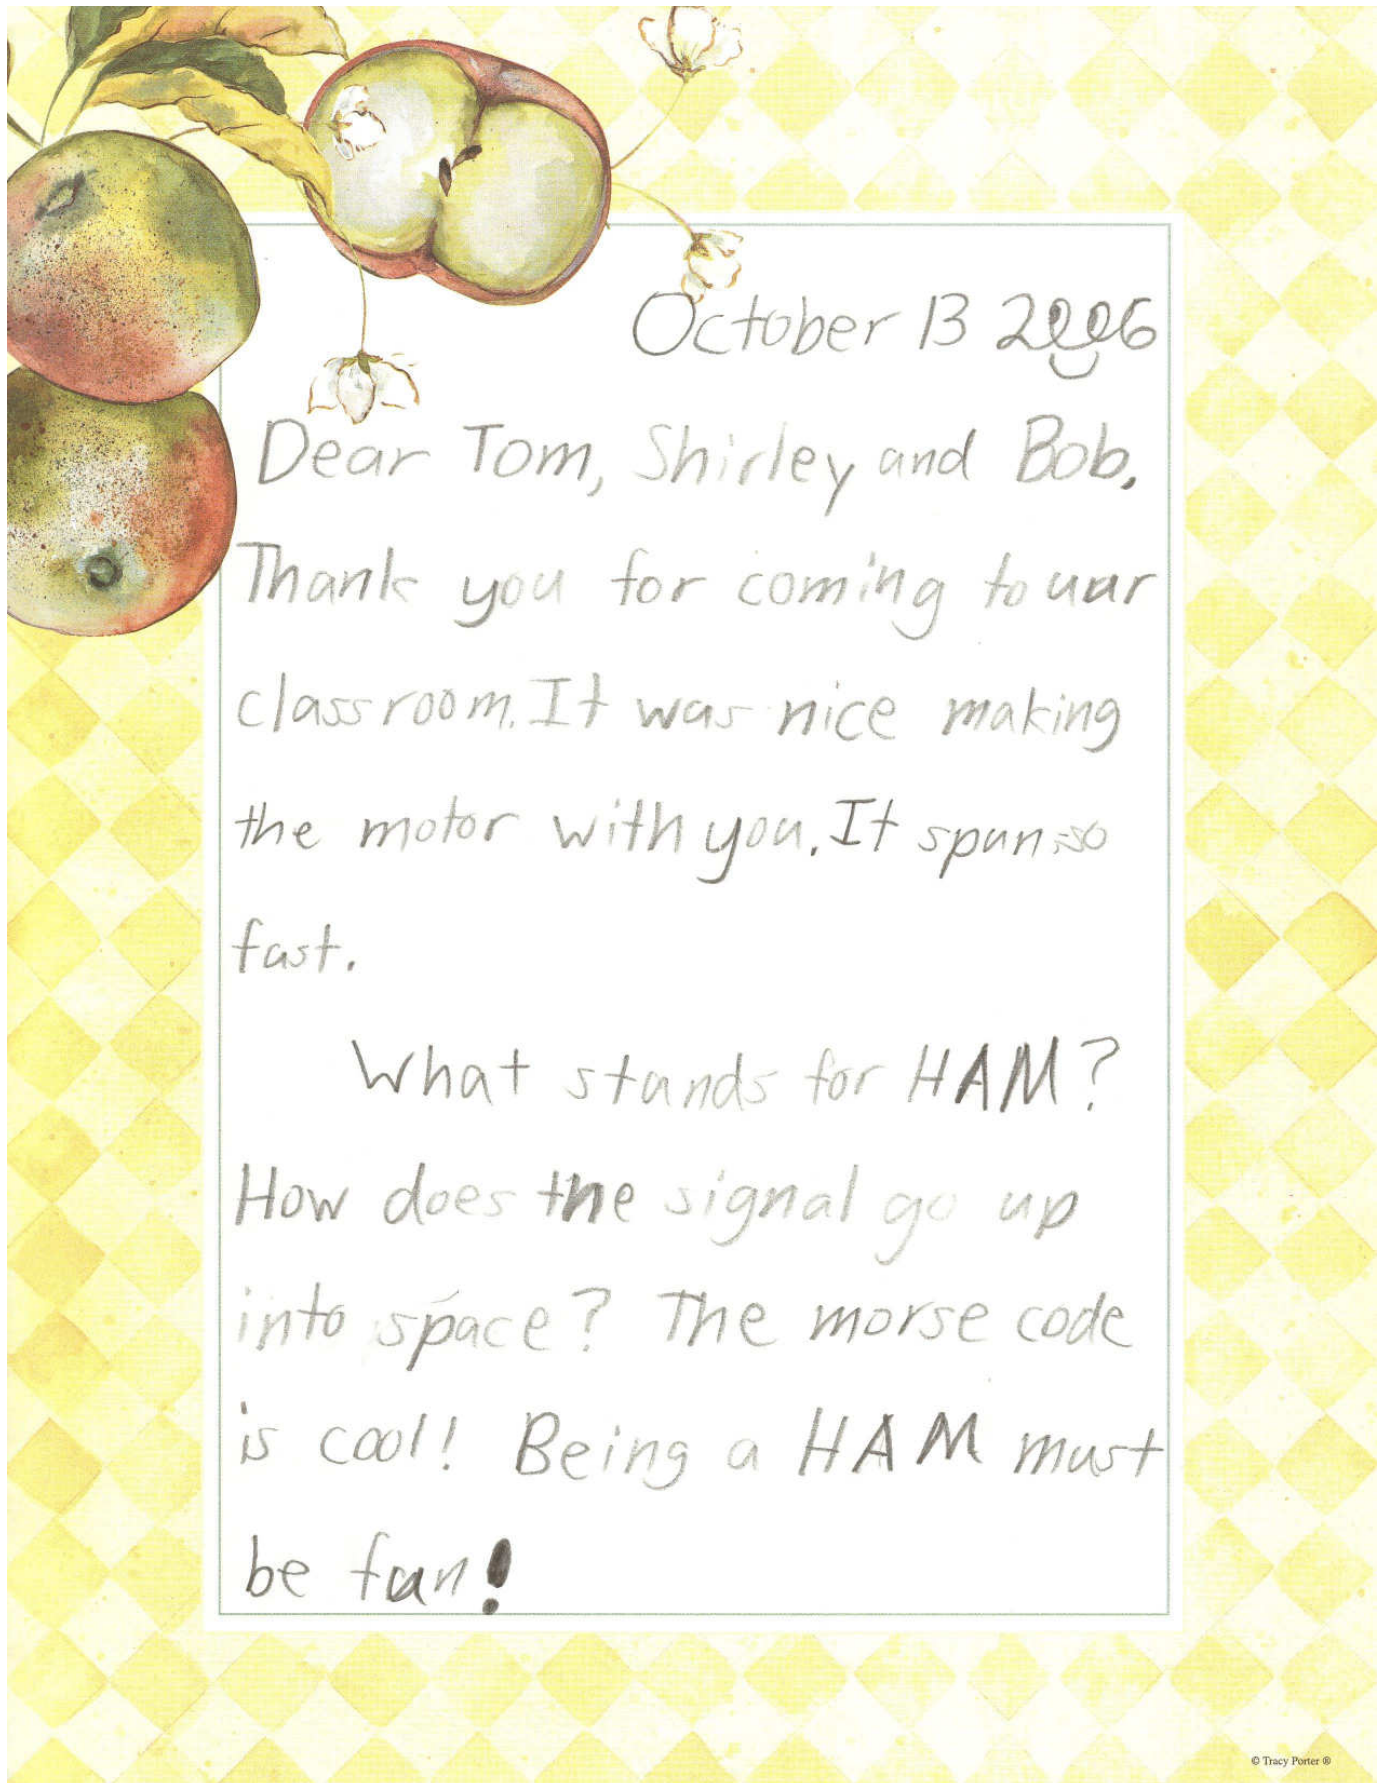 October 13 2006
Dear Tom, Shirley and Bob,
Thank you for coming to uar
classroom. It was nice making
the motor with you. It spun so
fast.
What stands for HAM?
How does the signal go up
into space? The morse code
is cool! Being a HAM must
be fun!
© Tracy Porter ®